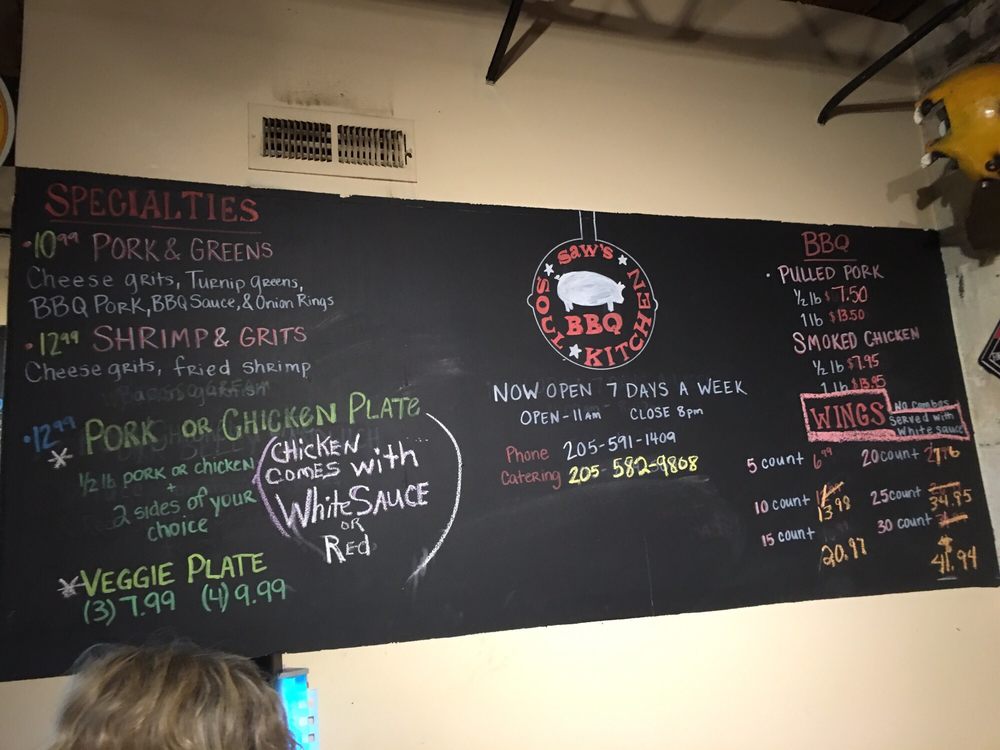 SPECIALTIES
• 10.99 PORK & GREENS
Cheese grits, Turnip greens,
BBQ Pork, BBQ Sauce, & Onion Rings
• 12.99 SHRIMP & GRITS
Cheese grits, fried shrimp
• 12.99 PORK OR CHICKEN PLATE
1/2 lb pork or chicken
+
2 sides of your
choice
CHICKEN
COMES with
White SAUCE
OR
Red
VEGGIE PLATE
(3) 7.99 (4) 9.99
SAW'S
SOUL KITCHEN
BBQ
NOW OPEN 7 DAYS A WEEK
OPEN-11AM CLOSE 8pm
Phone 205-591-1409
Catering 205-582-9868
BBQ
• PULLED PORK
1/2 lb $7.50
1 lb $13.50
SMOKED CHICKEN
1/2 lb $7.95
1 lb $13.95
WINGS
No combos
served with
White sauce
5 count 6.99
10 count 13.98
15 count 20.97
20 count
25 count 34.95
30 count 41.94